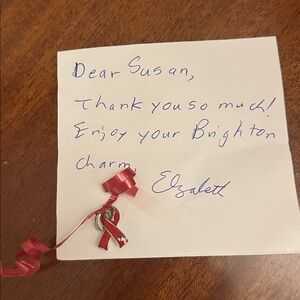 Dear Susan,
Thank you so much!
Enjoy your Brighton
charm
Elizabeth